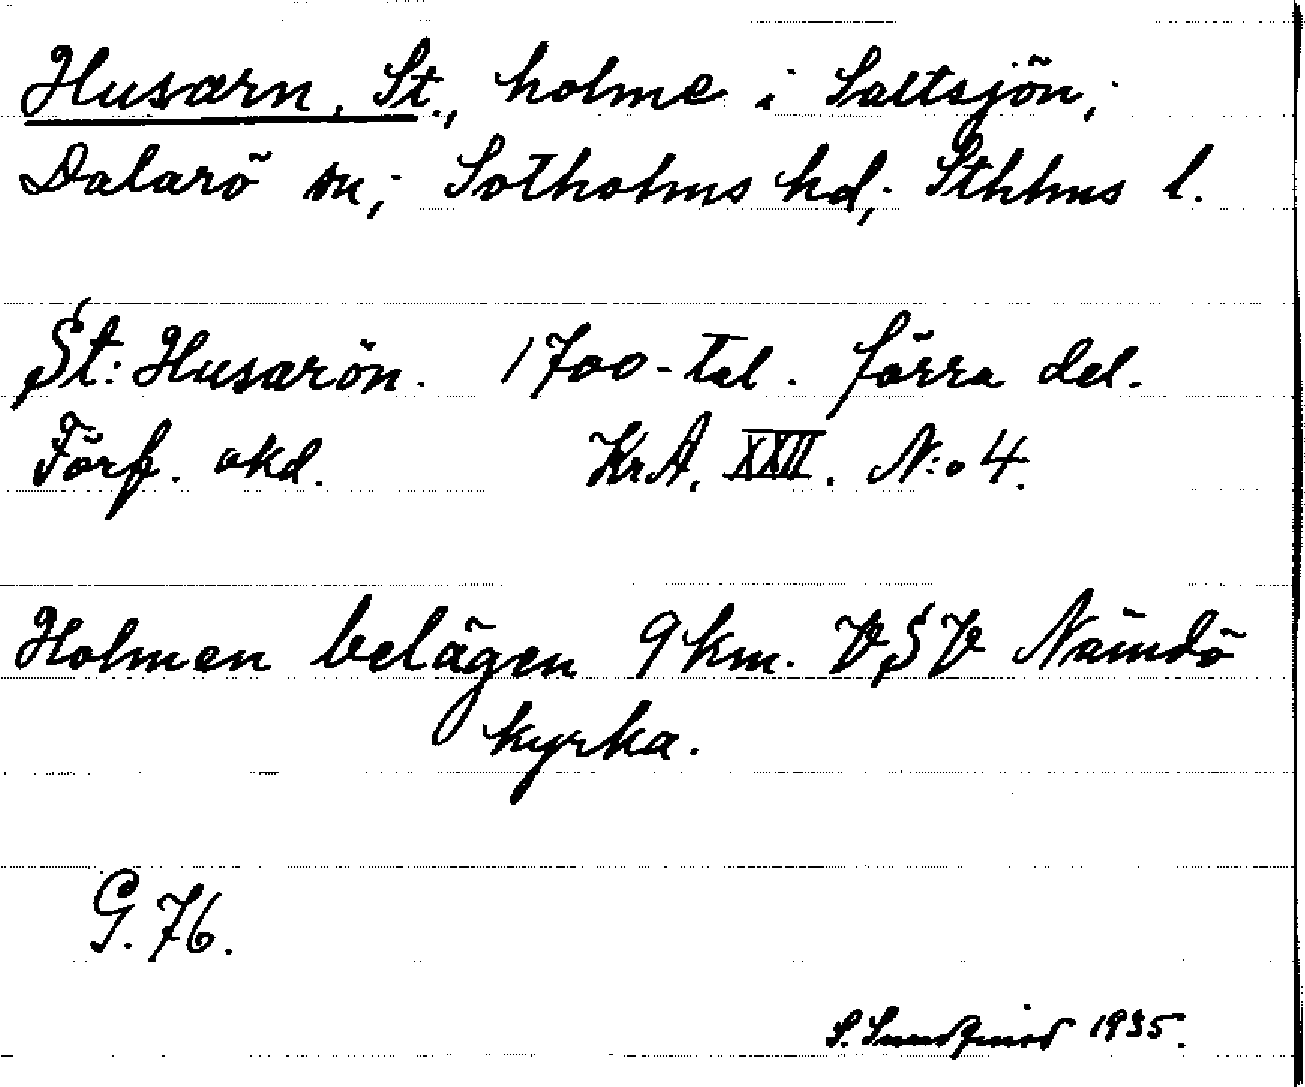 Husarn, St., holme i Saltsjön;
Dalarö sn; Sotholms hd; Sthlms l.
St: Husarön. 1700-tal. förra del.
Förf. okd. KrA. XXII. N:o 4.
Holmen belägen 9 km. VSV Nämdö
kyrka.
G. 76.
S. 1935.